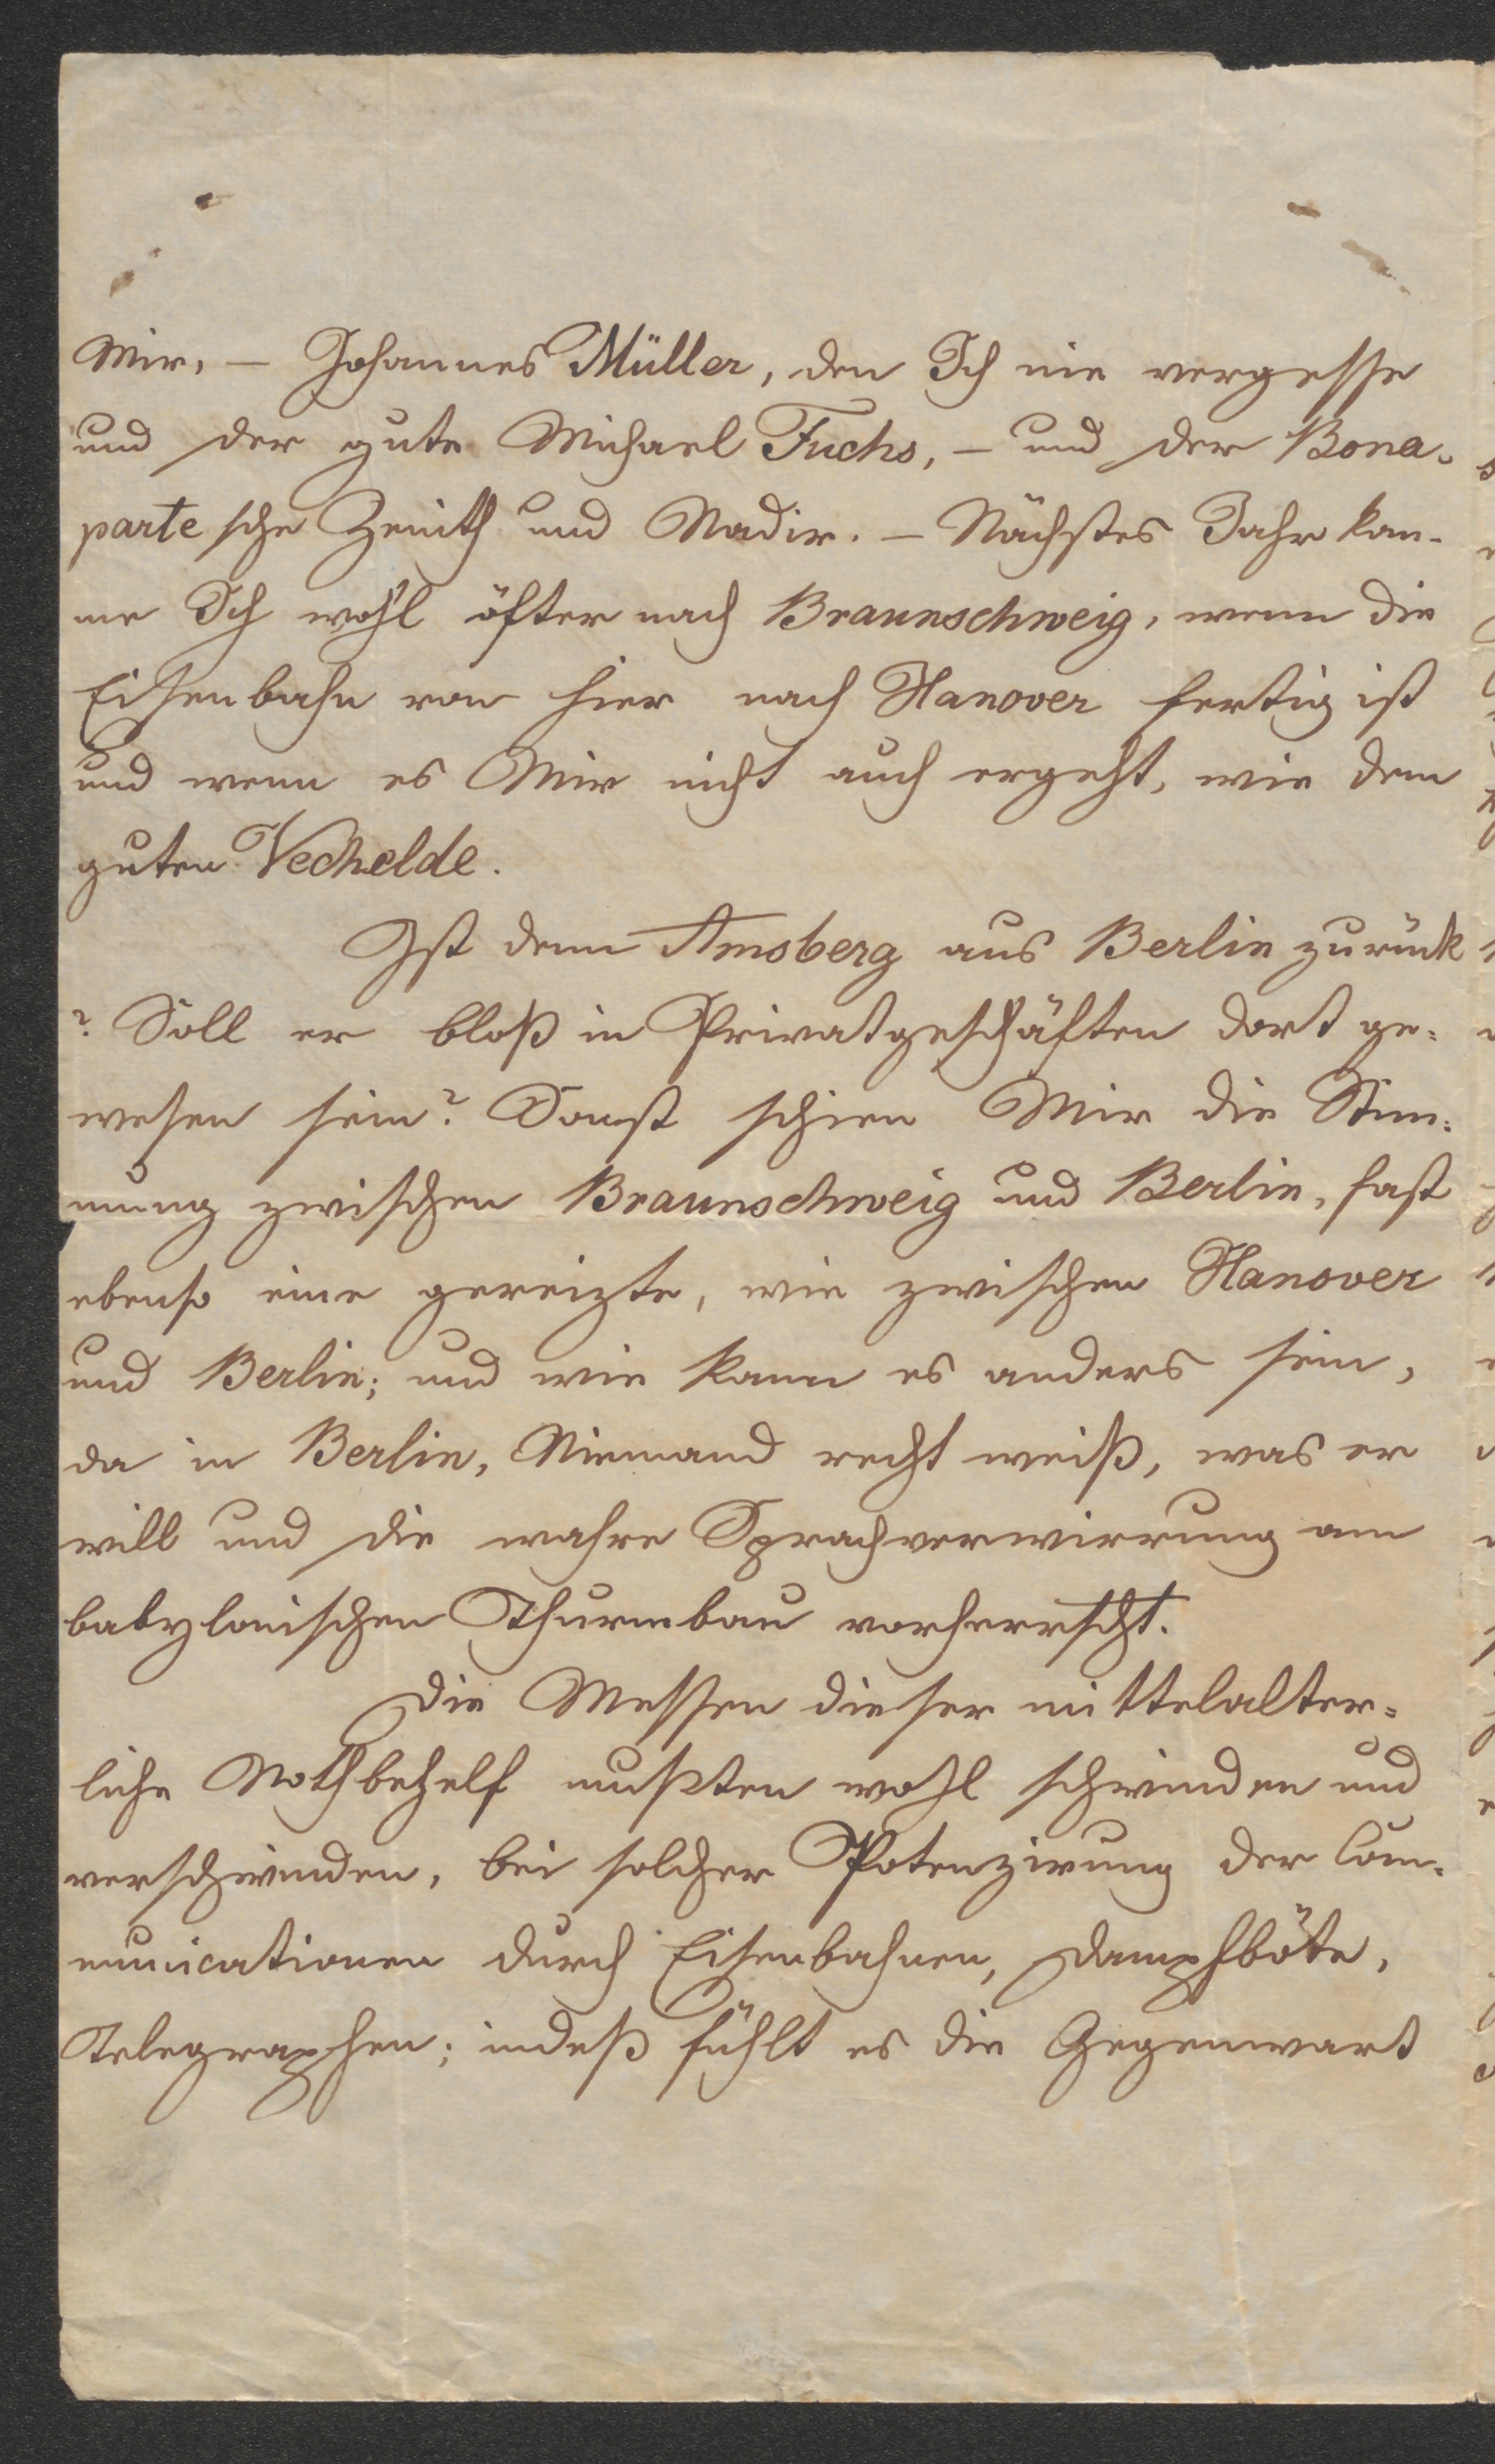 Mir. – Johannes Müller, den Ich nie vergesse
und der gute Michael Fuchs, – und der Bona-
partesche Zenith und Nadir. – Nächstes Jahr kom-
me Ich wohl öfter nach Braunschweig, wenn die
Eisenbahn von hier nach Hanover fertig ist
und wenn es Mir nicht auch ergeht, wie dem
guten Vechelde.
Ist denn Amsberg aus Berlin zurück
? Soll er bloß in Privatgeschäften dort ge-
wesen sein? Sonst schien Mir die Stim-
mung zwischen Braunschweig und Berlin, fast
ebenso eine gereizte, wie zwischen Hanover
und Berlin; und wie kann es anders sein,
da in Berlin, Niemand recht weiß, was er
will und die wahre Sprachverwirrung am
babylonischen Thurmbau vorherrscht.
Die Messen dieser mittelalter-
liche Nothbehelf mußten wohl schwinden und
verschwinden, bei solcher Potenzirung der Com-
municationen durch Eisenbahnen, Dampfböte,
Telegraphen; indeß fühlt es die Gegenwart